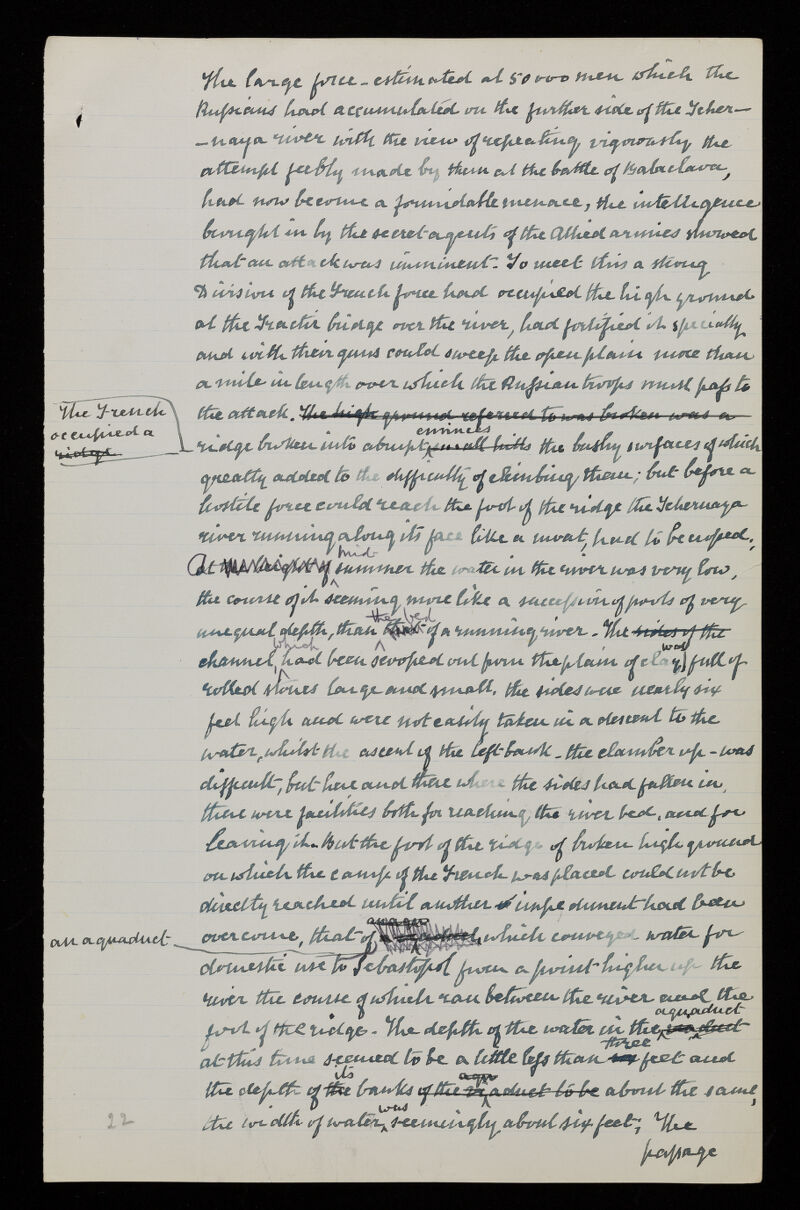 The large force - estimated at 50000 men which the
Russians had accumulated on the further side of the Tcher-
-naya river with the view of repeating vigorously the
attempt feebly made by them at the battle of Balaclava,
had now become a formidable menace, the intelligence
brought in by the secret agents of the Allied armies showed
that an attack was imminent. To meet this a strong
Division of the French force had occupied the high ground
at the Tractir bridge over the river, had fortified it specially
and with their guns could sweep the open plain more than
a mile in length over which the Russian troops must pass to
the attack. The high ground referred to was broken was a
The French
occupied a
ridge
eminces
ridge broken into abrupt small hills the bushy surfaces of which
greatly added to the difficulty of climbing them; but before a
hostile force could reach the foot of the ridge the Tchernaya
river running along its face like a moat, had to be crossed.
mid-
At the height of summer the water in the river was very low,
the course of it seeming more like a succession of pools of very
the bed
unequal depth, than that of a running river - The sides of the
which
was
channel, had been scooped out from the plain of clay, full of
rolled stones large and small. the sides were nearly six
feet high and were not easily taken in a descent to the
water, whilst the ascent of the left bank - the clamber up - was
difficult, but here and there where the sides had fallen in,
there were facilities both for reaching the river bed, and for
leaving it. But the foot of the ridge of broken high ground
on which the camp of the French was placed could not be
directly reached until another impediment had been
an aquaduct
overcome, that of which conveyed water for
domestic use to Sebastopol from a point higher up the
river the course of which ran between the river and the
aquaduct
foot of the ridge. The depth of the water in the viaduct
three
at this time seemed to be a little less than feet and
its
aqu
the depth of the banks of the viaduct to be about the same,
was
the width of water, seemingly about six feet; The
passage
22